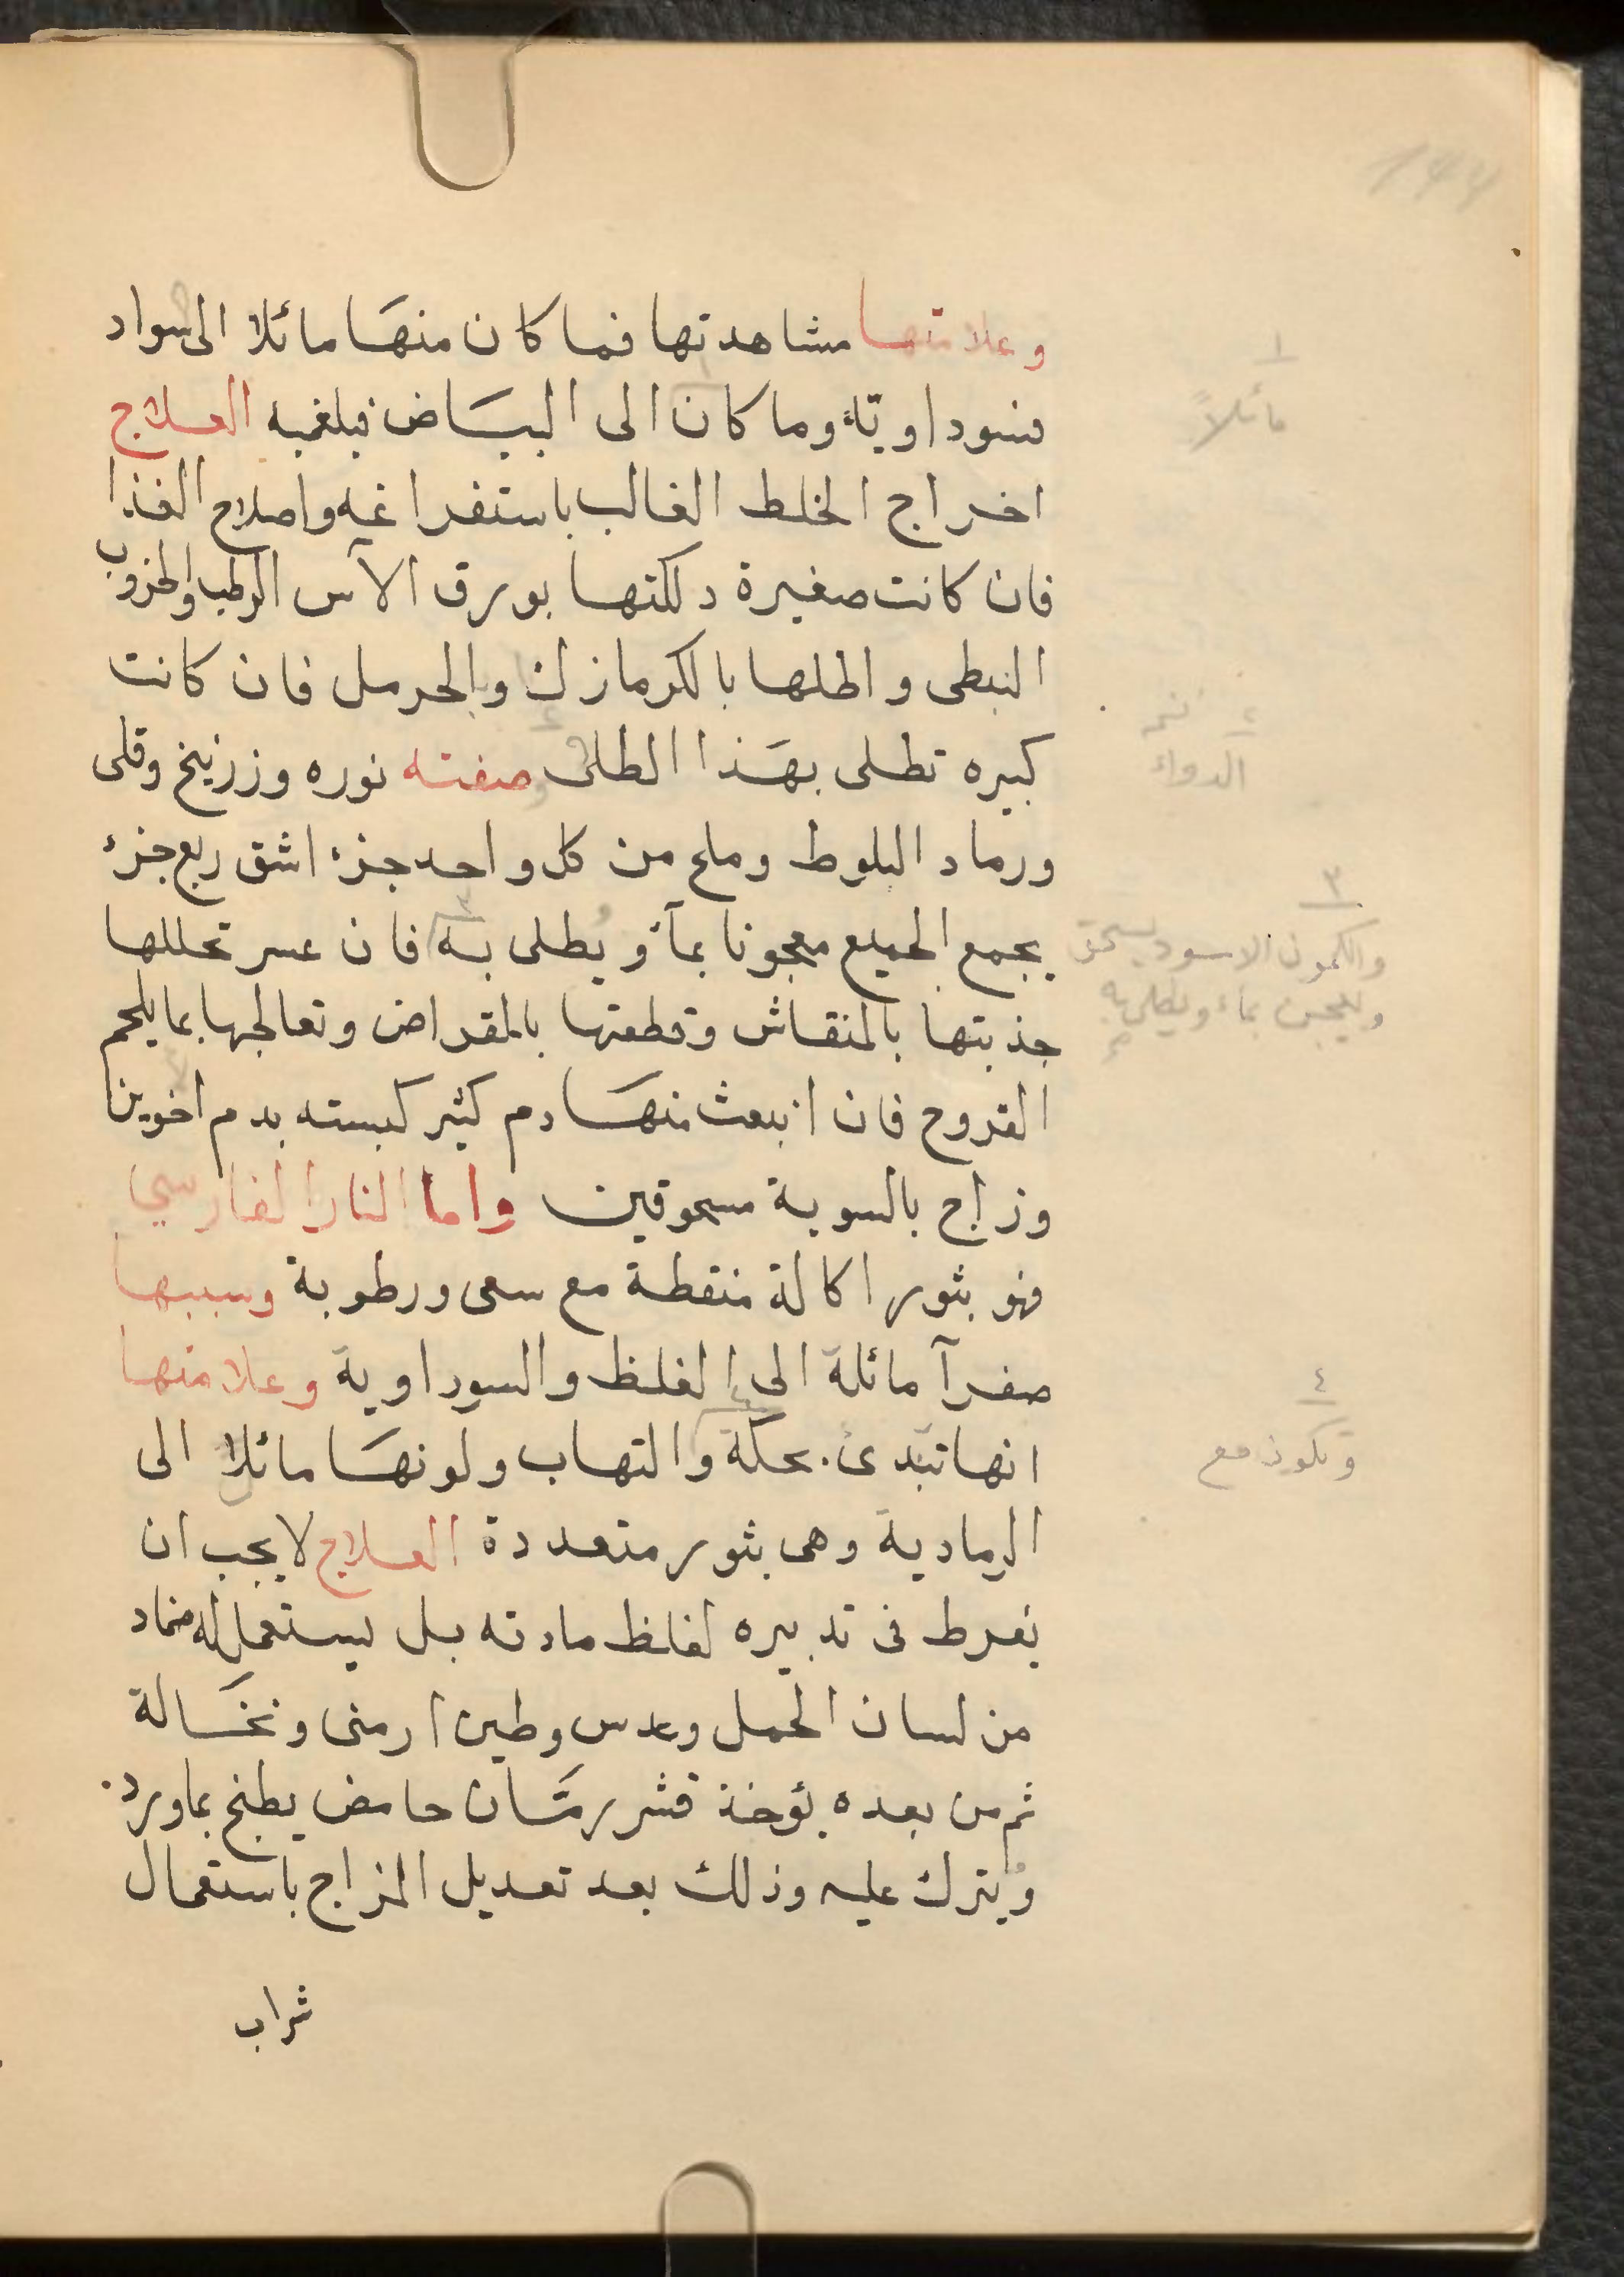 وعلامتها مشاهدتها فما كان منها مائلا الى سواد
فسوداوية وما كان الى البياض فبلغميه العلاج
اخراج الخلط الغالب باستفراغه واصلاح الغذا
فان كانت صغيرة دلكتها بورق الآس الرطب والخزوب
النبطى واطلها بالكرمازك والحرمل فان كانت
كبيره تطلى بهذا الطلى صفته نوره وزرنيخ وقلى
ورماد البلوط وملح من كل واحد جزء اشق ربع جزء
يجمع الجميع معجونا بمآء ويطلى به فان عسر تحللها
جذبتها بالمنقاش وقطعتها بالمقراض وتعالجها بما يلحم
القروح فان انبعث منها دم كثير كبسته بدم اخوين
وزاج بالسوية مسحوقين واما النار الفارسي
فهو بثور اكالة منقطة مع سعى ورطوبة وسببها
صفرآ مائلة الى الغلظ والسوداوية وعلامتها
انها تبتدئ بحكة والتهاب ولونها مائلا الى
الرمادية وهى بثور متعددة العلاج لا يجب ان
يفرط فى تدبيره لغلظ مادته بل يستعمل له ضماد
من لسان الحمل وعدس وطين ارمنى ونخالة
ثم من بعده يؤخذ قشر رمان حامض يطبخ بماورد
ويترك عليه وذلك بعد تعديل المزاج باستعمال
شراب
١
مائلاً
٢
الدواء
٣
والكمون الاسود يسحق
ويعجن بماء ويطلى به
٤
وتكون مع